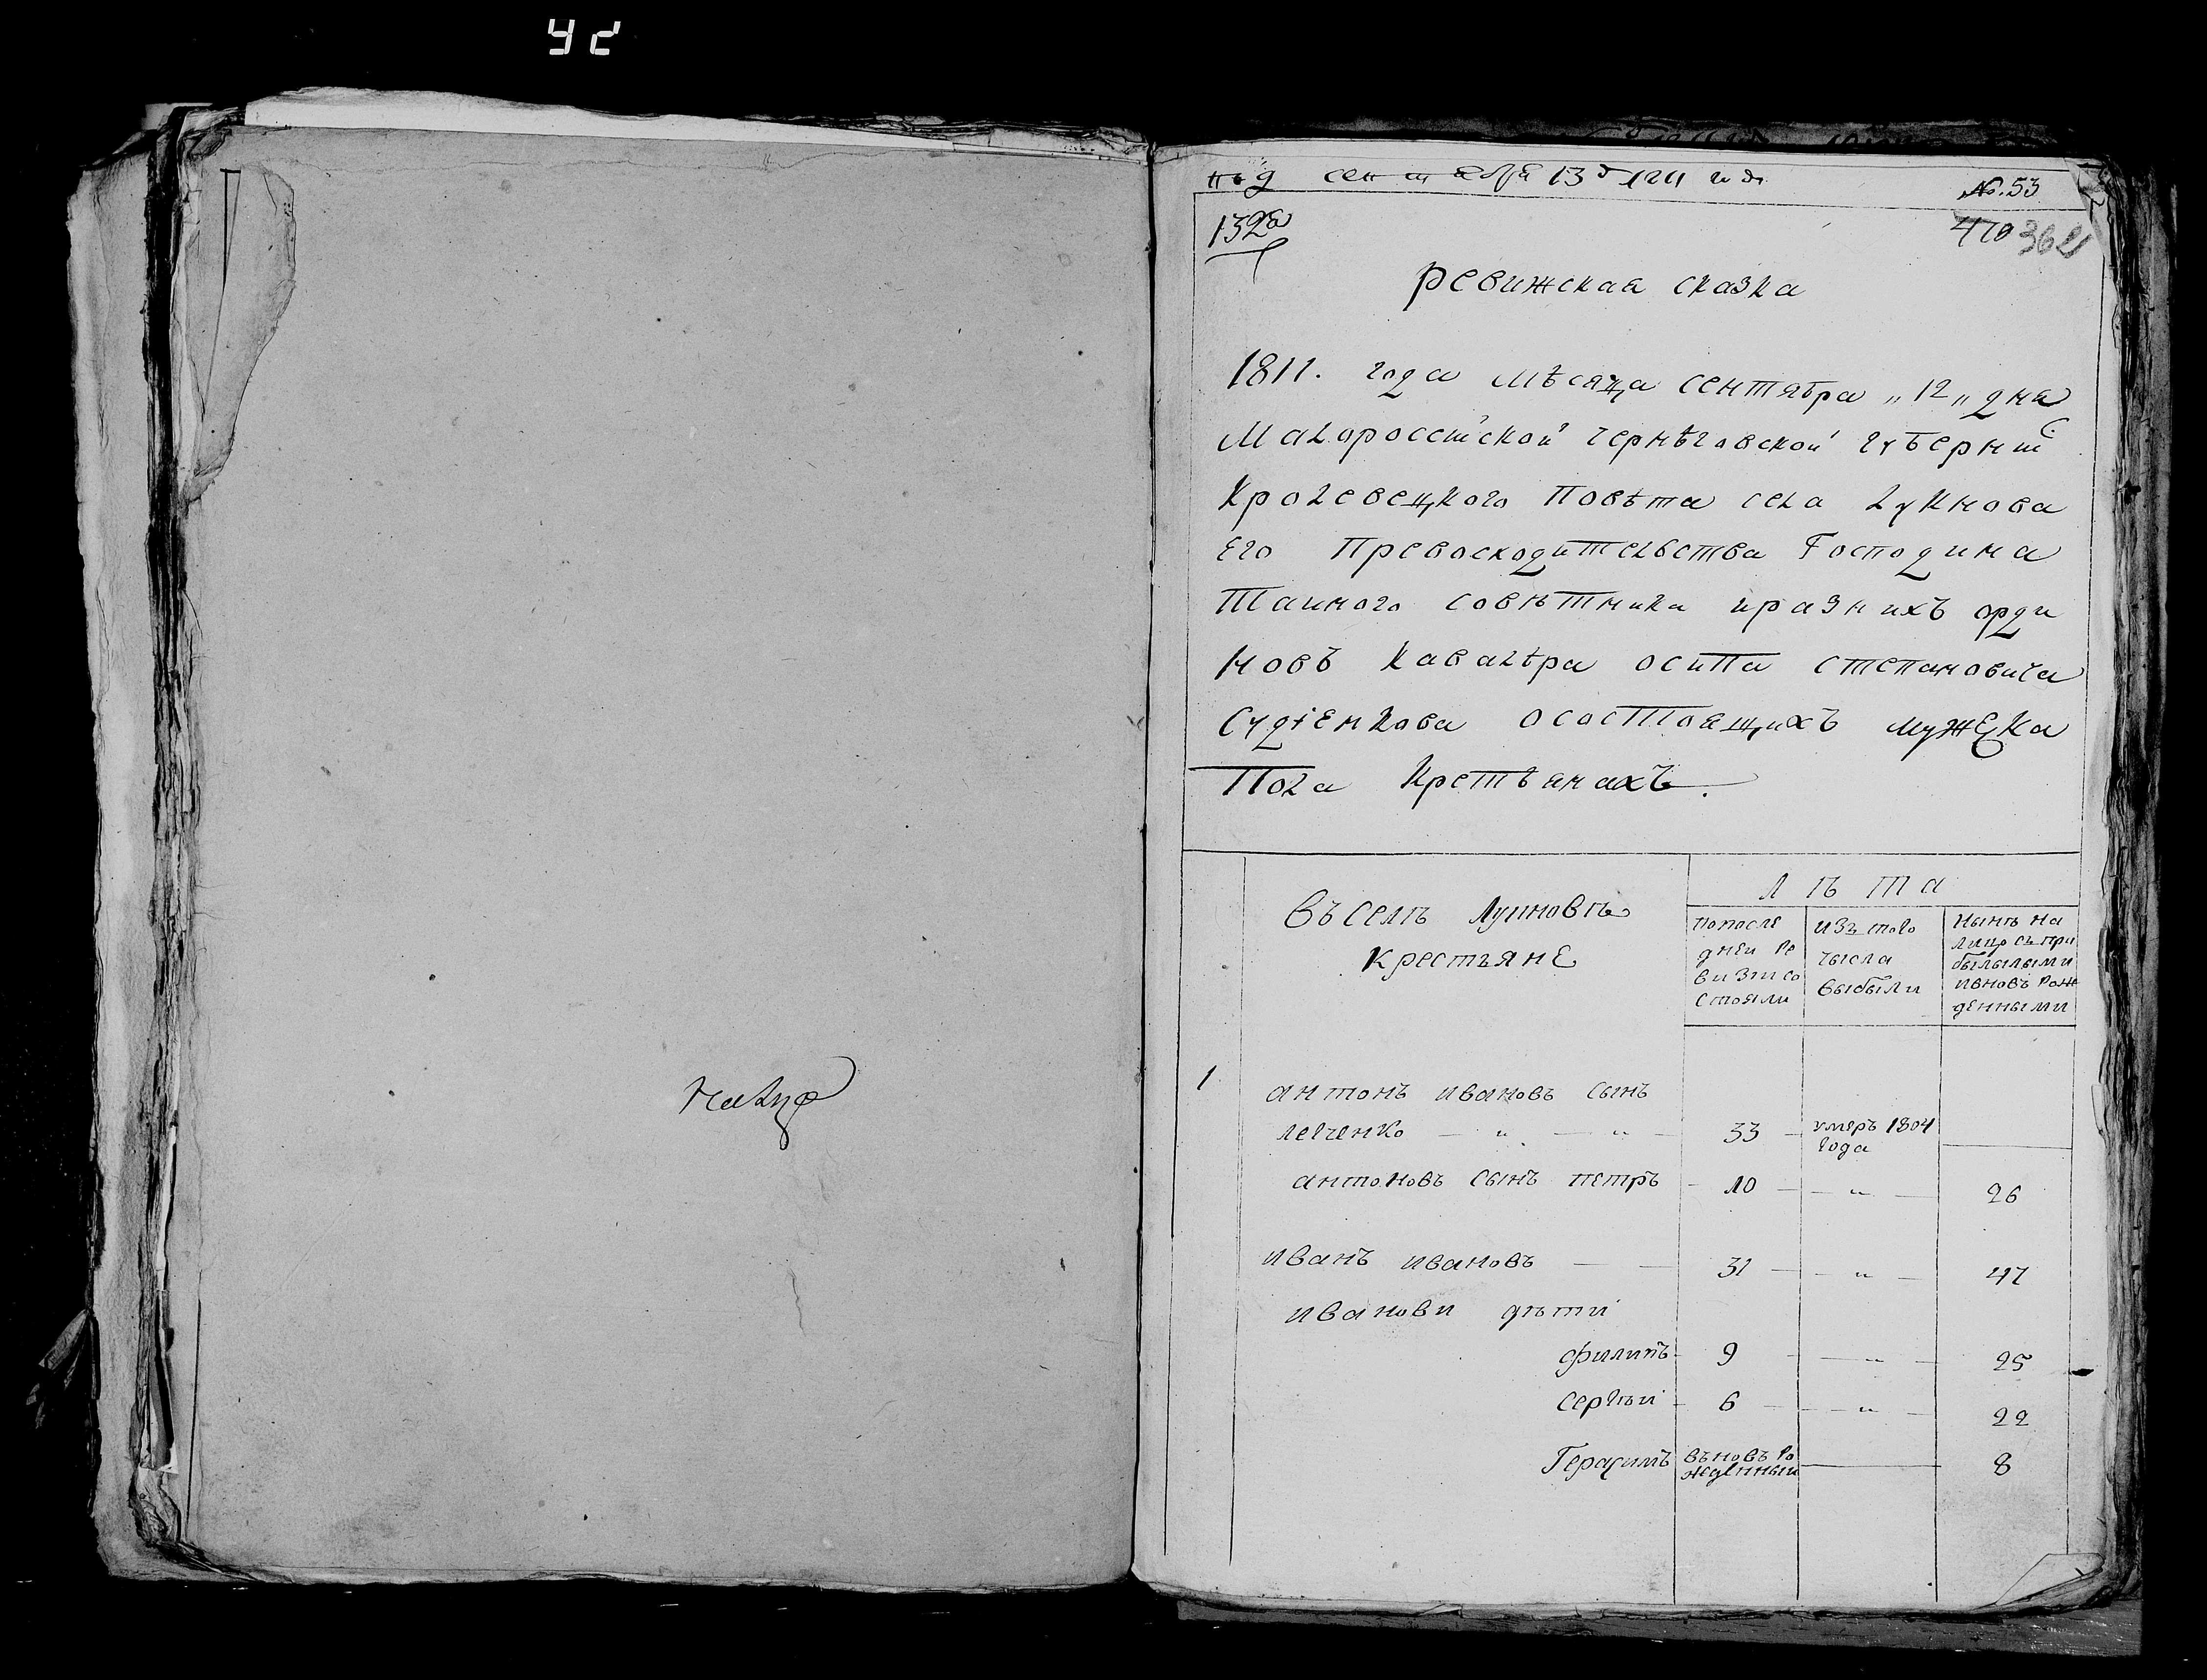 под сентября 13 д 1811 года
№. 53
132й
470 362
ревижская сказка
1811. года мѣсяца сентября „12„ дня
Малоросеійской чернѣговской губерніи
Кролевецкого Повѣта села Лукнова
Его Превосходительства Господина
Таиного совѣтника и разнихъ орди
новъ Кавалѣра осипа степановича
Судіенкова осостоящихъ мужеска
Пола Кретьянахъ.
въ селѣ Лукновѣ
крестьянE
лѣта
попосле
дней ре
визіи со
стояли
изъ того
числа
выбыли
нынѣ на
лицо съ при
былылыми
ивновъ рож
денными
1 антонъ ивановъ сынъ
левченко — „ — „ — 33 — умеръ 1804
года
антоновъ сынъ петръ — 10 — „ — 26
иванъ ивановъ — — 31 — „ — 47
иванови дѣти
филипъ — 9 — „ — 25
сергѣй — 6 — „ — 22
Герасимъ въновъ ро
жденный — 8